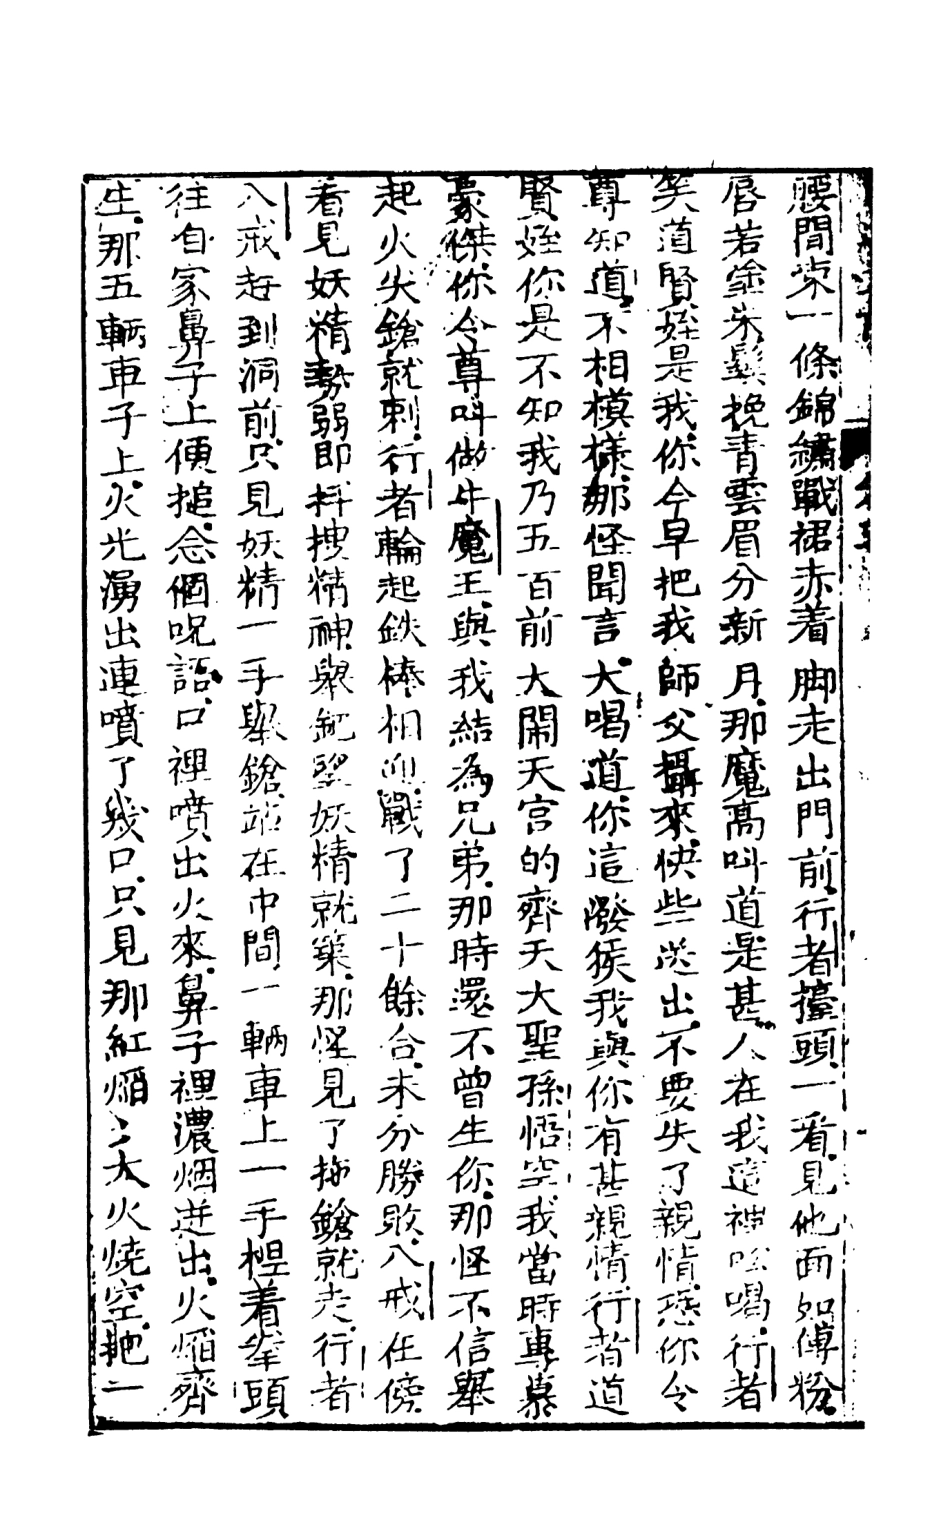 腰間束一條錦繡戰裙赤着脚走出門前行者擡頭一看見他面如傅粉
唇若塗朱鬢挽青雲眉分新月那魔高叫道是甚人在我這裡吆喝行者
笑道賢姪是我你今早把我師父攝來快些送出不要失了親情恐你令
尊知道不相模樣那怪聞言大喝道你這潑猴我與你有甚親情行者道
賢姪你是不知我乃五百前大鬧天宮的齊天大聖孫悟空我當時專慕
豪傑你令尊叫做牛魔王與我結為兄弟那時還不曾生你那怪不信舉
起火尖鎗就刺行者輪起鉄棒相迎戰了二十餘合未分勝敗八戒在傍
看見妖精勢弱即抖搜精神舉鈀望妖精就築那怪見了拖鎗就走行者
八戒赶到洞前只見妖精一手舉鎗站在中間一輌車上一手揑着拳頭
往自家鼻子上便搥念個呪語口裡噴出火來鼻子裡濃烟迸出火熖齊
生那五輌車子上火光湧出連噴了幾口只見那紅熖〻大火燒空靶二